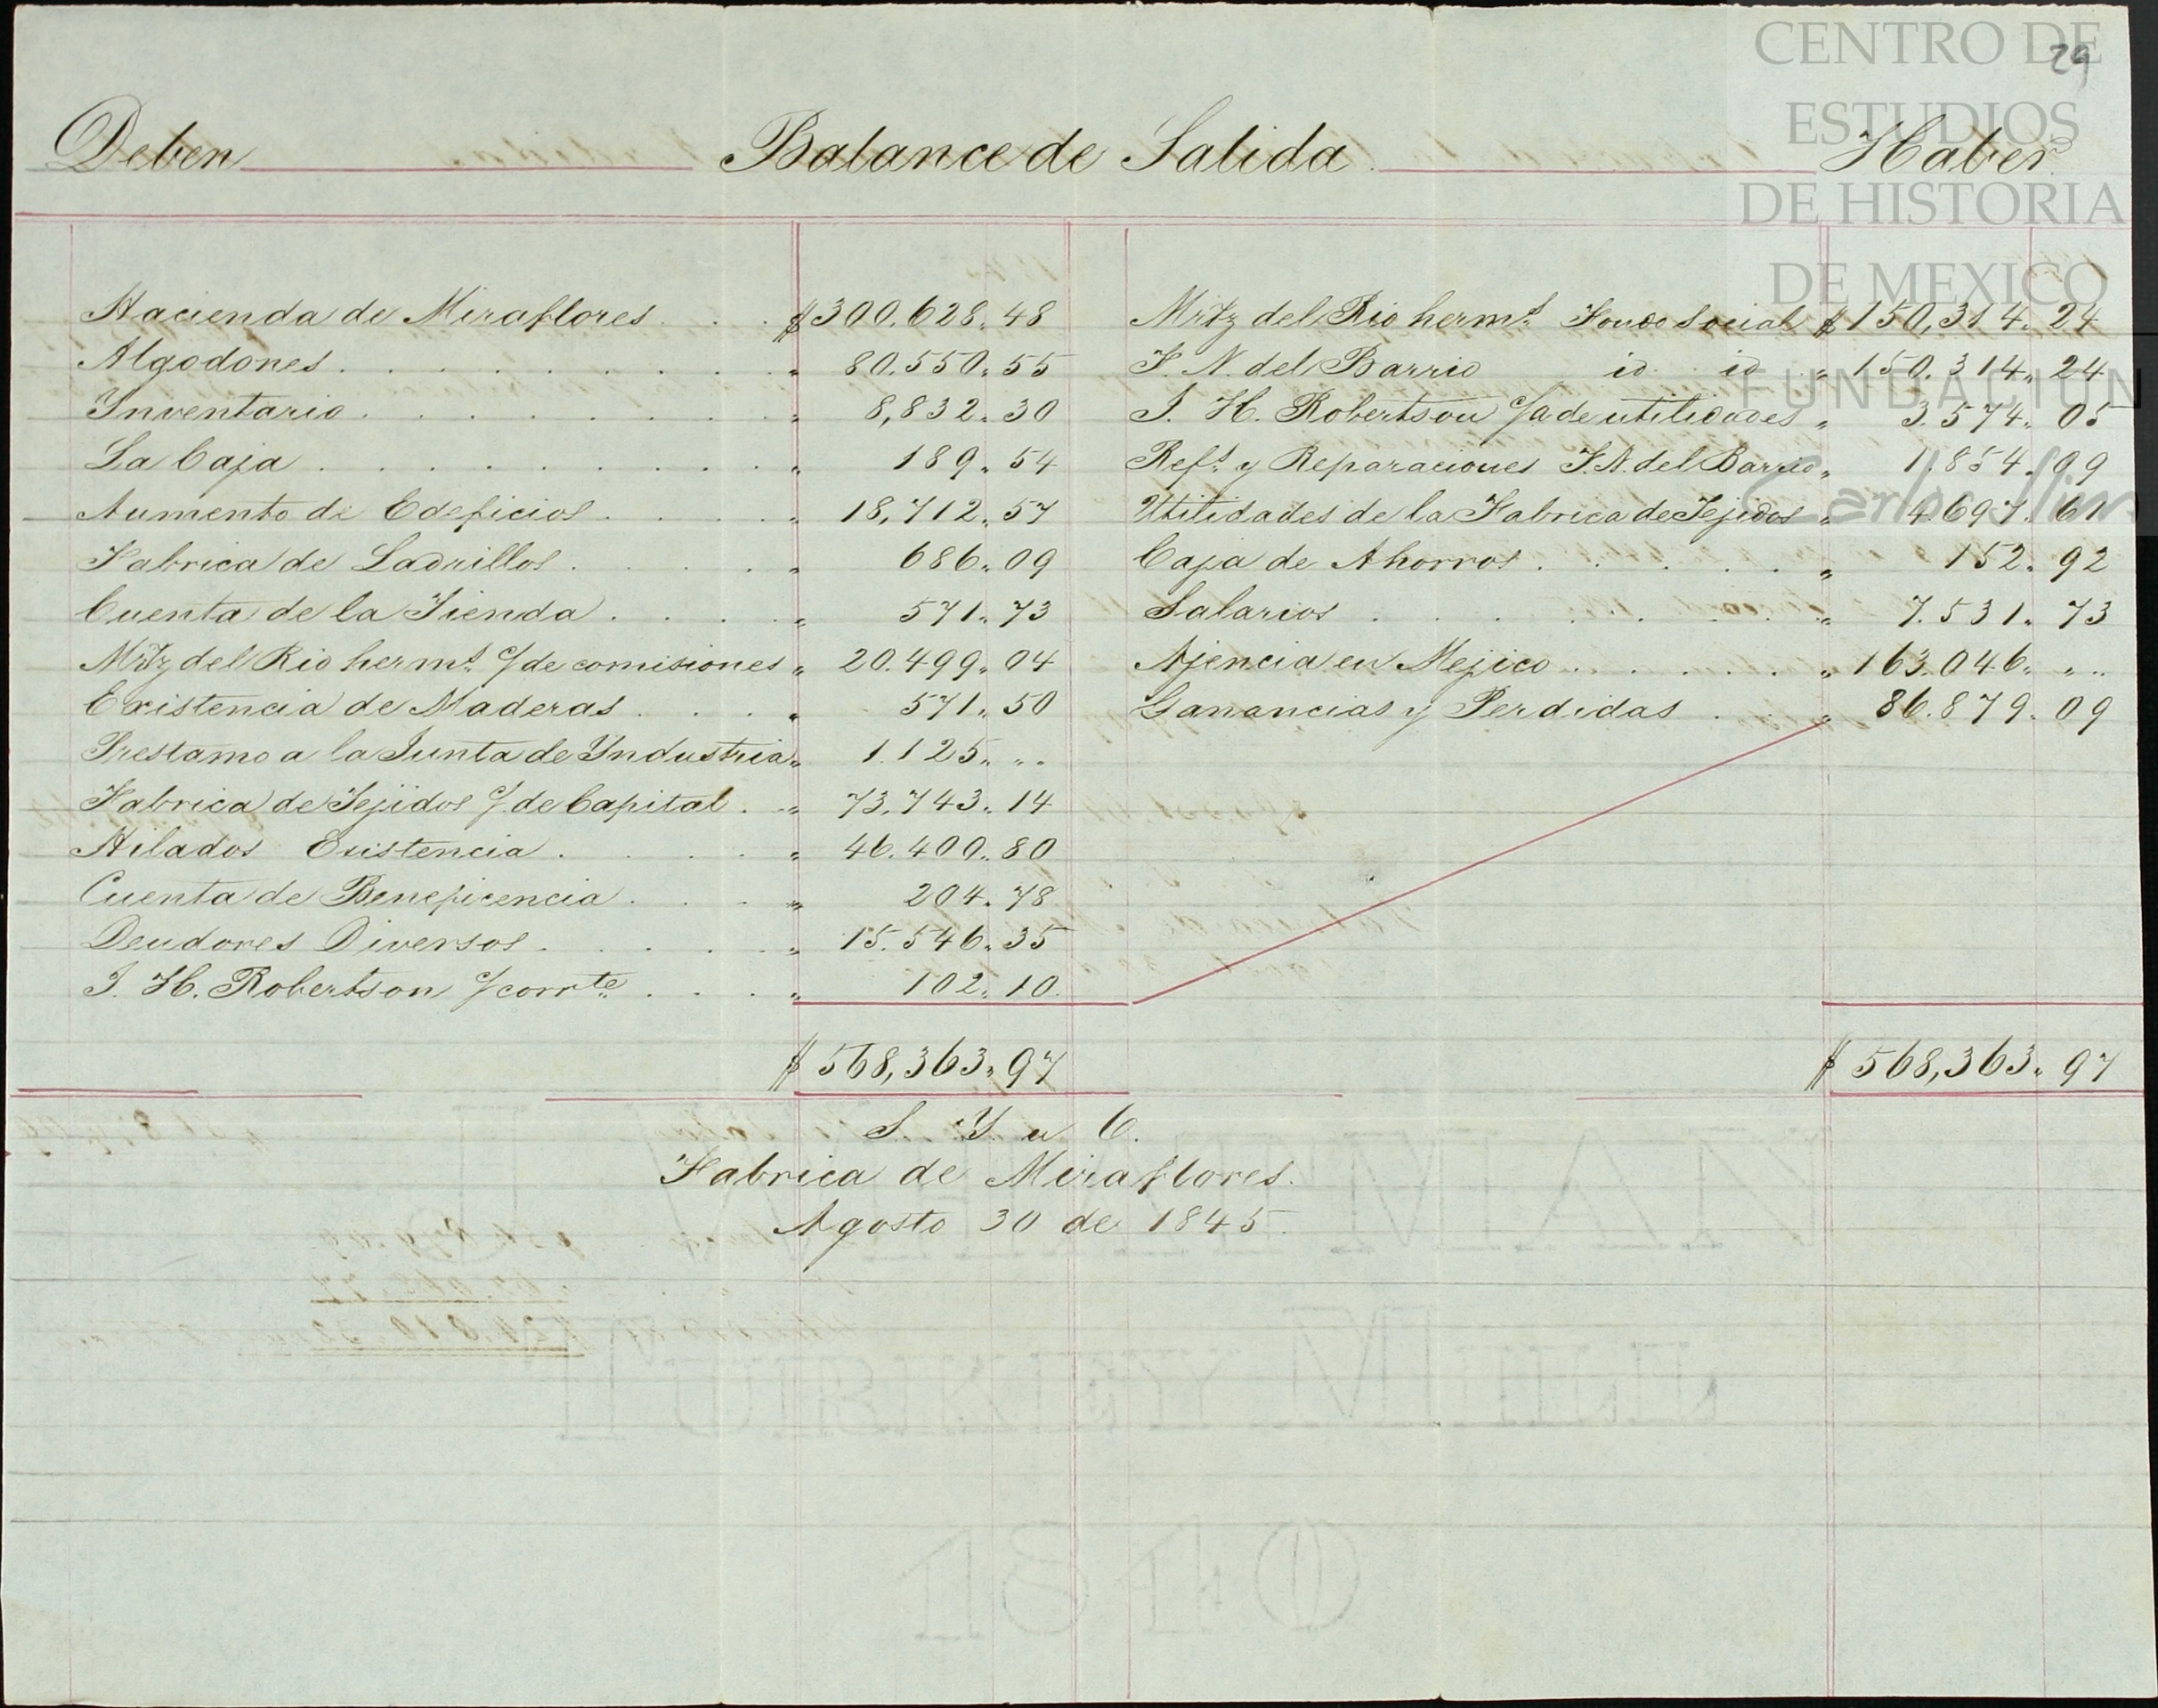 CENTRO DE
ESTUDIOS
DE HISTORIA
DE MEXICO
FUNDACIÓN
Carlos Slim
29
Deben Balance de Salida Haber
Hacienda de Miraflores . . . $300.628. 48 Mrtz del Rio hermS. Fondo Social $ 150,314. 24
Algodones . . . . . . . . . " 80.550. 55 F. N. del Barrio id. id " 150.314. 24
Ynventario . . . . . . . . " 8,832. 30 J. H. Robertson C/a de utilidades " 3.574. 05
La Caja . . . . . . . . . " 189. 54 Refs. y Reparaciones F. N. del Barrio " 1.854. 09
Aumento de Edeficios . . . . " 18,712. 57 Utilidades de la Fabrica de Tejidos " 4.697. 61
Fabrica de Ladrillos . . . . " 686. 09 Caja de Ahorros . . . . . " 152. 92
Cuenta de la Tienda . . . . " 571. 73 Salarios . . . . . . . " 7.531. 73
Mrtz del Rio hermS. C/ de comisiones " 20.499. 04 Ajencia en Mejico . . . . . " 163.046. " "
Existencia de Maderas . . . " 571. 50 Ganancias y Perdidas . . " 86.879. 09
Prestamo a la Junta de Yndustria " 1.125. " "
Fabrica de Tejidos C/ de Capital . " 73.743. 14
Hilados Existencia . . . . " 46.400. 80
Cuenta de Beneficencia . . . " 204. 78
Deudores Diversos . . . . . " 15.546. 35
J. H. Robertson C/ corrte . . . " 102. 10
$ 568,363. 97 $ 568,363. 97
S. Y. u C.
Fabrica de Miraflores.
Agosto 30 de 1845.